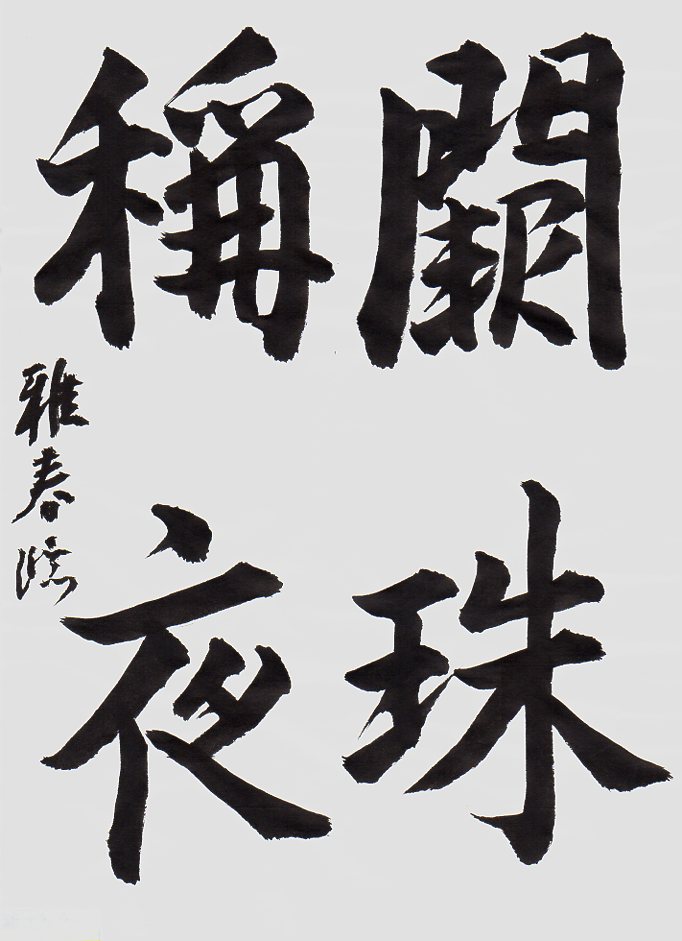 闕珠
稱夜
雅春臨